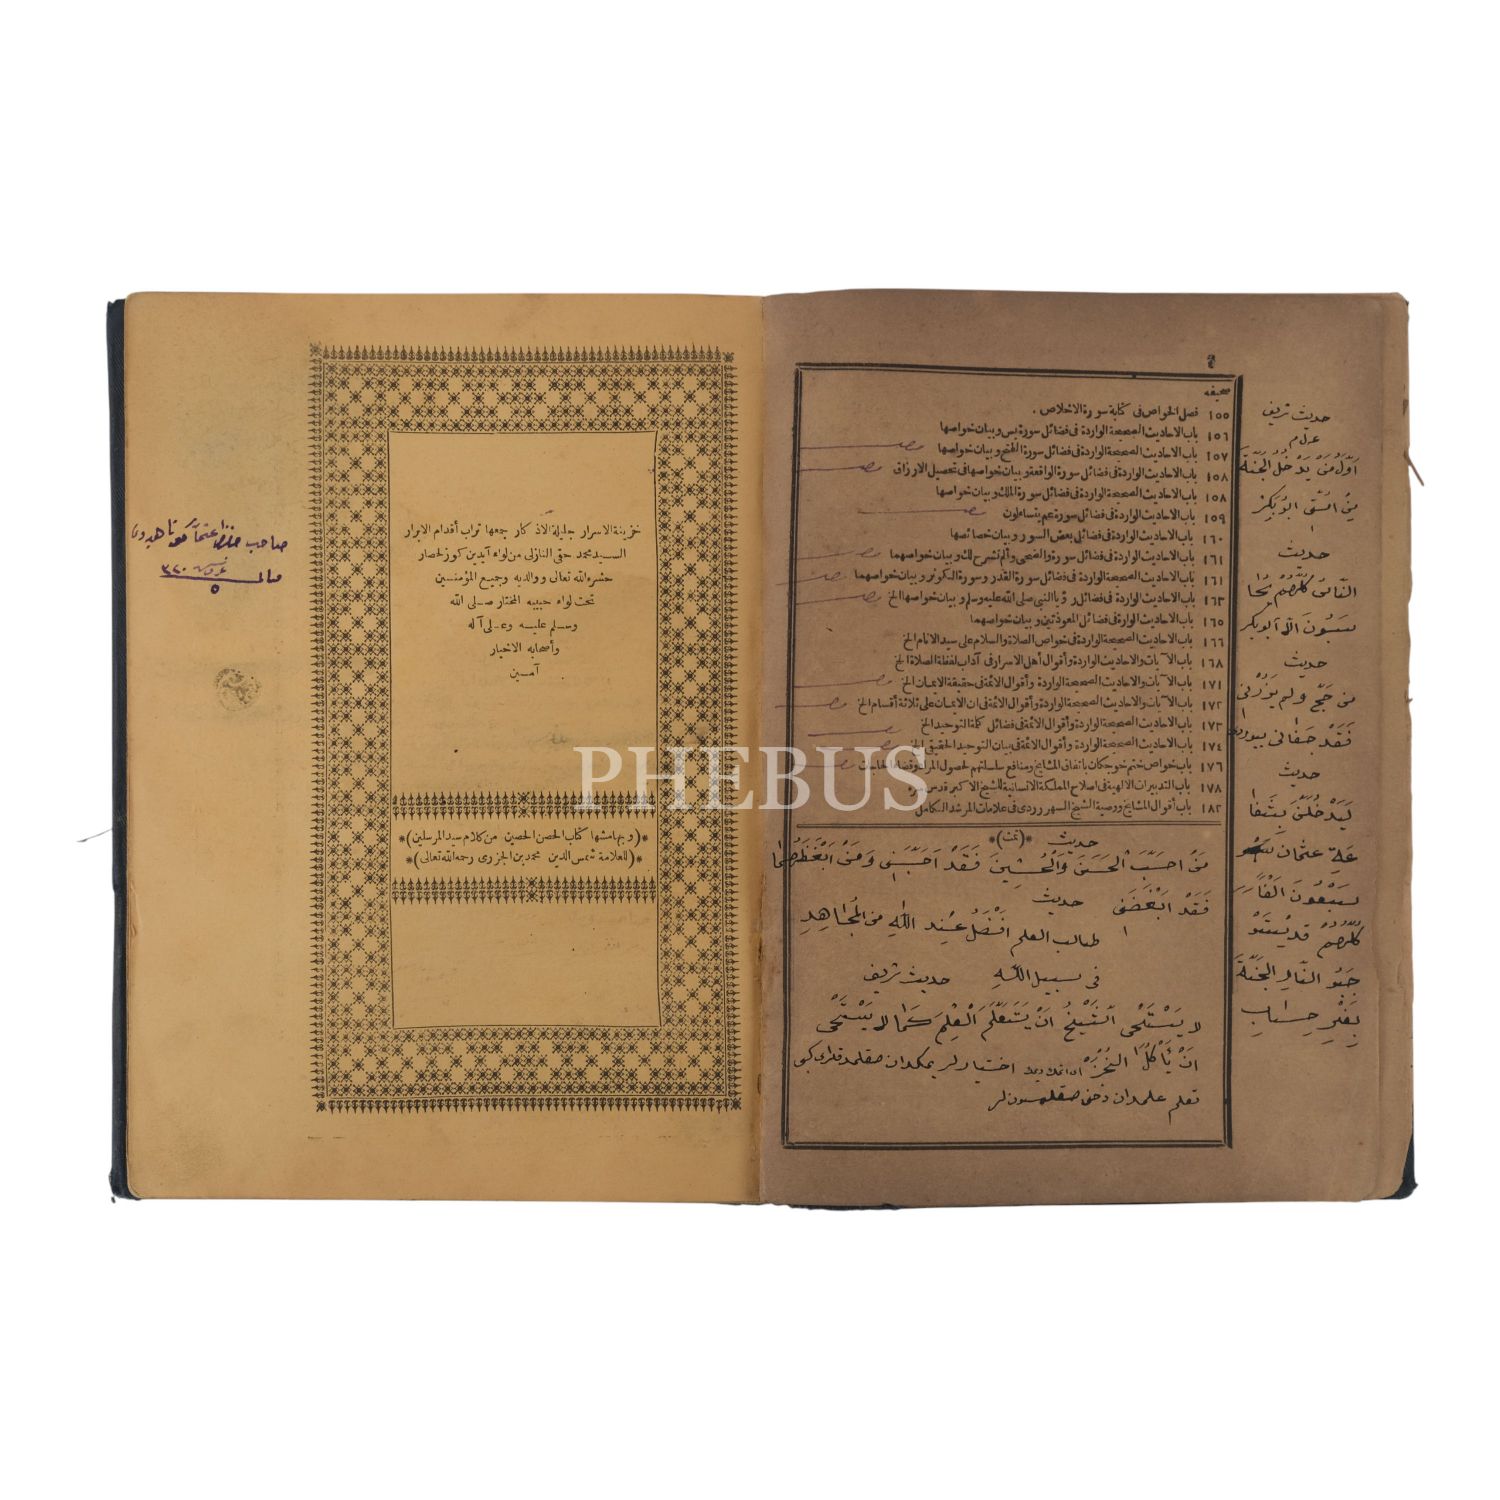 صحيفه
١٥٥ فصل الخواص فى كتابة سورة الاخلاص .
١٥٦ باب الاحاديث الصحيحة الواردة فى فضائل سورة يس وبيان خواصها
١٥٧ باب الاحاديث الصحيحة الواردة فى فضائل سورة الفتح وبيان خواصها
١٥٨ باب الاحاديث الواردة فى فضائل سورة الواقعة وبيان خواصها فى تحصيل الارزاق
١٥٨ باب الاحاديث الصحيحة الواردة فى فضائل سورة الملك وبيان خواصها
١٥٩ باب الاحاديث الواردة فى فضائل سورة عم يتساءلون
١٦٠ باب الاحاديث الواردة فى فضائل بعض السور وبيان خصائصها
١٦١ باب الاحاديث الواردة فى فضائل سورة والضحى وألم نشرح لك وبيان خواصهما
١٦١ باب الاحاديث الصحيحة الواردة فى فضائل سورة القدر وسورة الكوثر وبيان خواصهما
١٦٣ باب الاحاديث الواردة فى فضائل رؤيا النبى صلى الله عليه وسلم وبيان خواصها الخ
١٦٥ باب الاحاديث الواردة فى فضائل المعوذتين وبيان خواصهما
١٦٦ باب الاحاديث الصحيحة الواردة فى خواص الصلاة والسلام على سيد الانام الخ
١٦٨ باب الآيات والاحاديث الواردة وأقوال أهل الاسرار فى آداب لفظة الصلاة الخ
١٧١ باب الآيات والاحاديث الصحيحة الواردة وأقوال الائمة فى حقيقة الايمان الخ
١٧٢ باب الآيات والاحاديث الصحيحة الواردة وأقوال الائمة فى ان الايمان على ثلاثة أقسام الخ
١٧٣ باب الاحاديث الصحيحة الواردة وأقوال الائمة فى فضائل كلمة التوحيد الخ
١٧٤ باب الاحاديث الصحيحة الواردة وأقوال الائمة فى بيان التوحيد الحقيقى الخ
١٧٦ باب خواص ختم خوجكان باتفاق المشايخ ومنافع سلسلتهم لحصول المراد وقضاء الحاجات
١٧٨ باب التدبيرات الالهية فى اصلاح المملكة الانسانية للشيخ الاكبر قدس سره
١٨٢ باب أقوال المشايخ ووصية الشيخ السهروردى فى علامات المرشد الكامل
*(تمت)*
حديث
مَنْ اَحَبَّ الْحَسَنَ وَالْحُسَيْنَ فَقَدْ اَحَبَّنِى وَمَنْ اَبْغَضَهُمَا
فَقَدْ اَبْغَضَنِى حديث
طالب العلم افضل عِنْدَ اللهِ من المُجَاهِدِ
فى سبيل الله حديث شريف
لا يَسْتَحْىِ الشَّيْخُ اَنْ يَتَعَلَّمَ الْعِلْمَ كَمَا لا يَسْتَحْىِ
اَنْ يَأْكُلَ الخُبْزَ اختيارلر يمكدن صقلمدقلرى كبى
تعلم علمدن دخى صقلمسونلر
حديث شريف
اَوَّلُ مَنْ يَدْخُلُ الجَنَّةَ
مِنْ اُمَّتِى اَبُوبَكْرٍ
حديث
النَّاسُ كُلُّهُمْ يُحَا
سَبُونَ الا ابوبكر
حديث
من حَجَّ ولم يَزُرْنِى
فَقَدْ جَفَانِى
حديث
لَيَدْخُلَنَّ بِشَفَا
عَةِ عثمان
سَبْعُونَ اَلْفًا
كُلُّهُمْ قد اسْتَوْ
جَبُوا النَّارَ الجَنَّةَ
بِغَيْرِ حِسَابٍ
خزينة الاسرار جليلة الاذكار جمعها تراب أقدام الابرار
السيد محمد حقى النازلى من لواء آيدين كوزلحصار
حشره الله تعالى ووالديه وجميع المؤمنين
تحت لواء حبيبه المختار صلى الله
وسلم عليه وعلى آله
وأصحابه الاخيار
آمين
*(وبهامشها كتاب الحصن الحصين من كلام سيد المرسلين)*
*(للعلامة شمس الدين محمد بن الجزرى رحمه الله تعالى)*
صاحب
PHEBUS